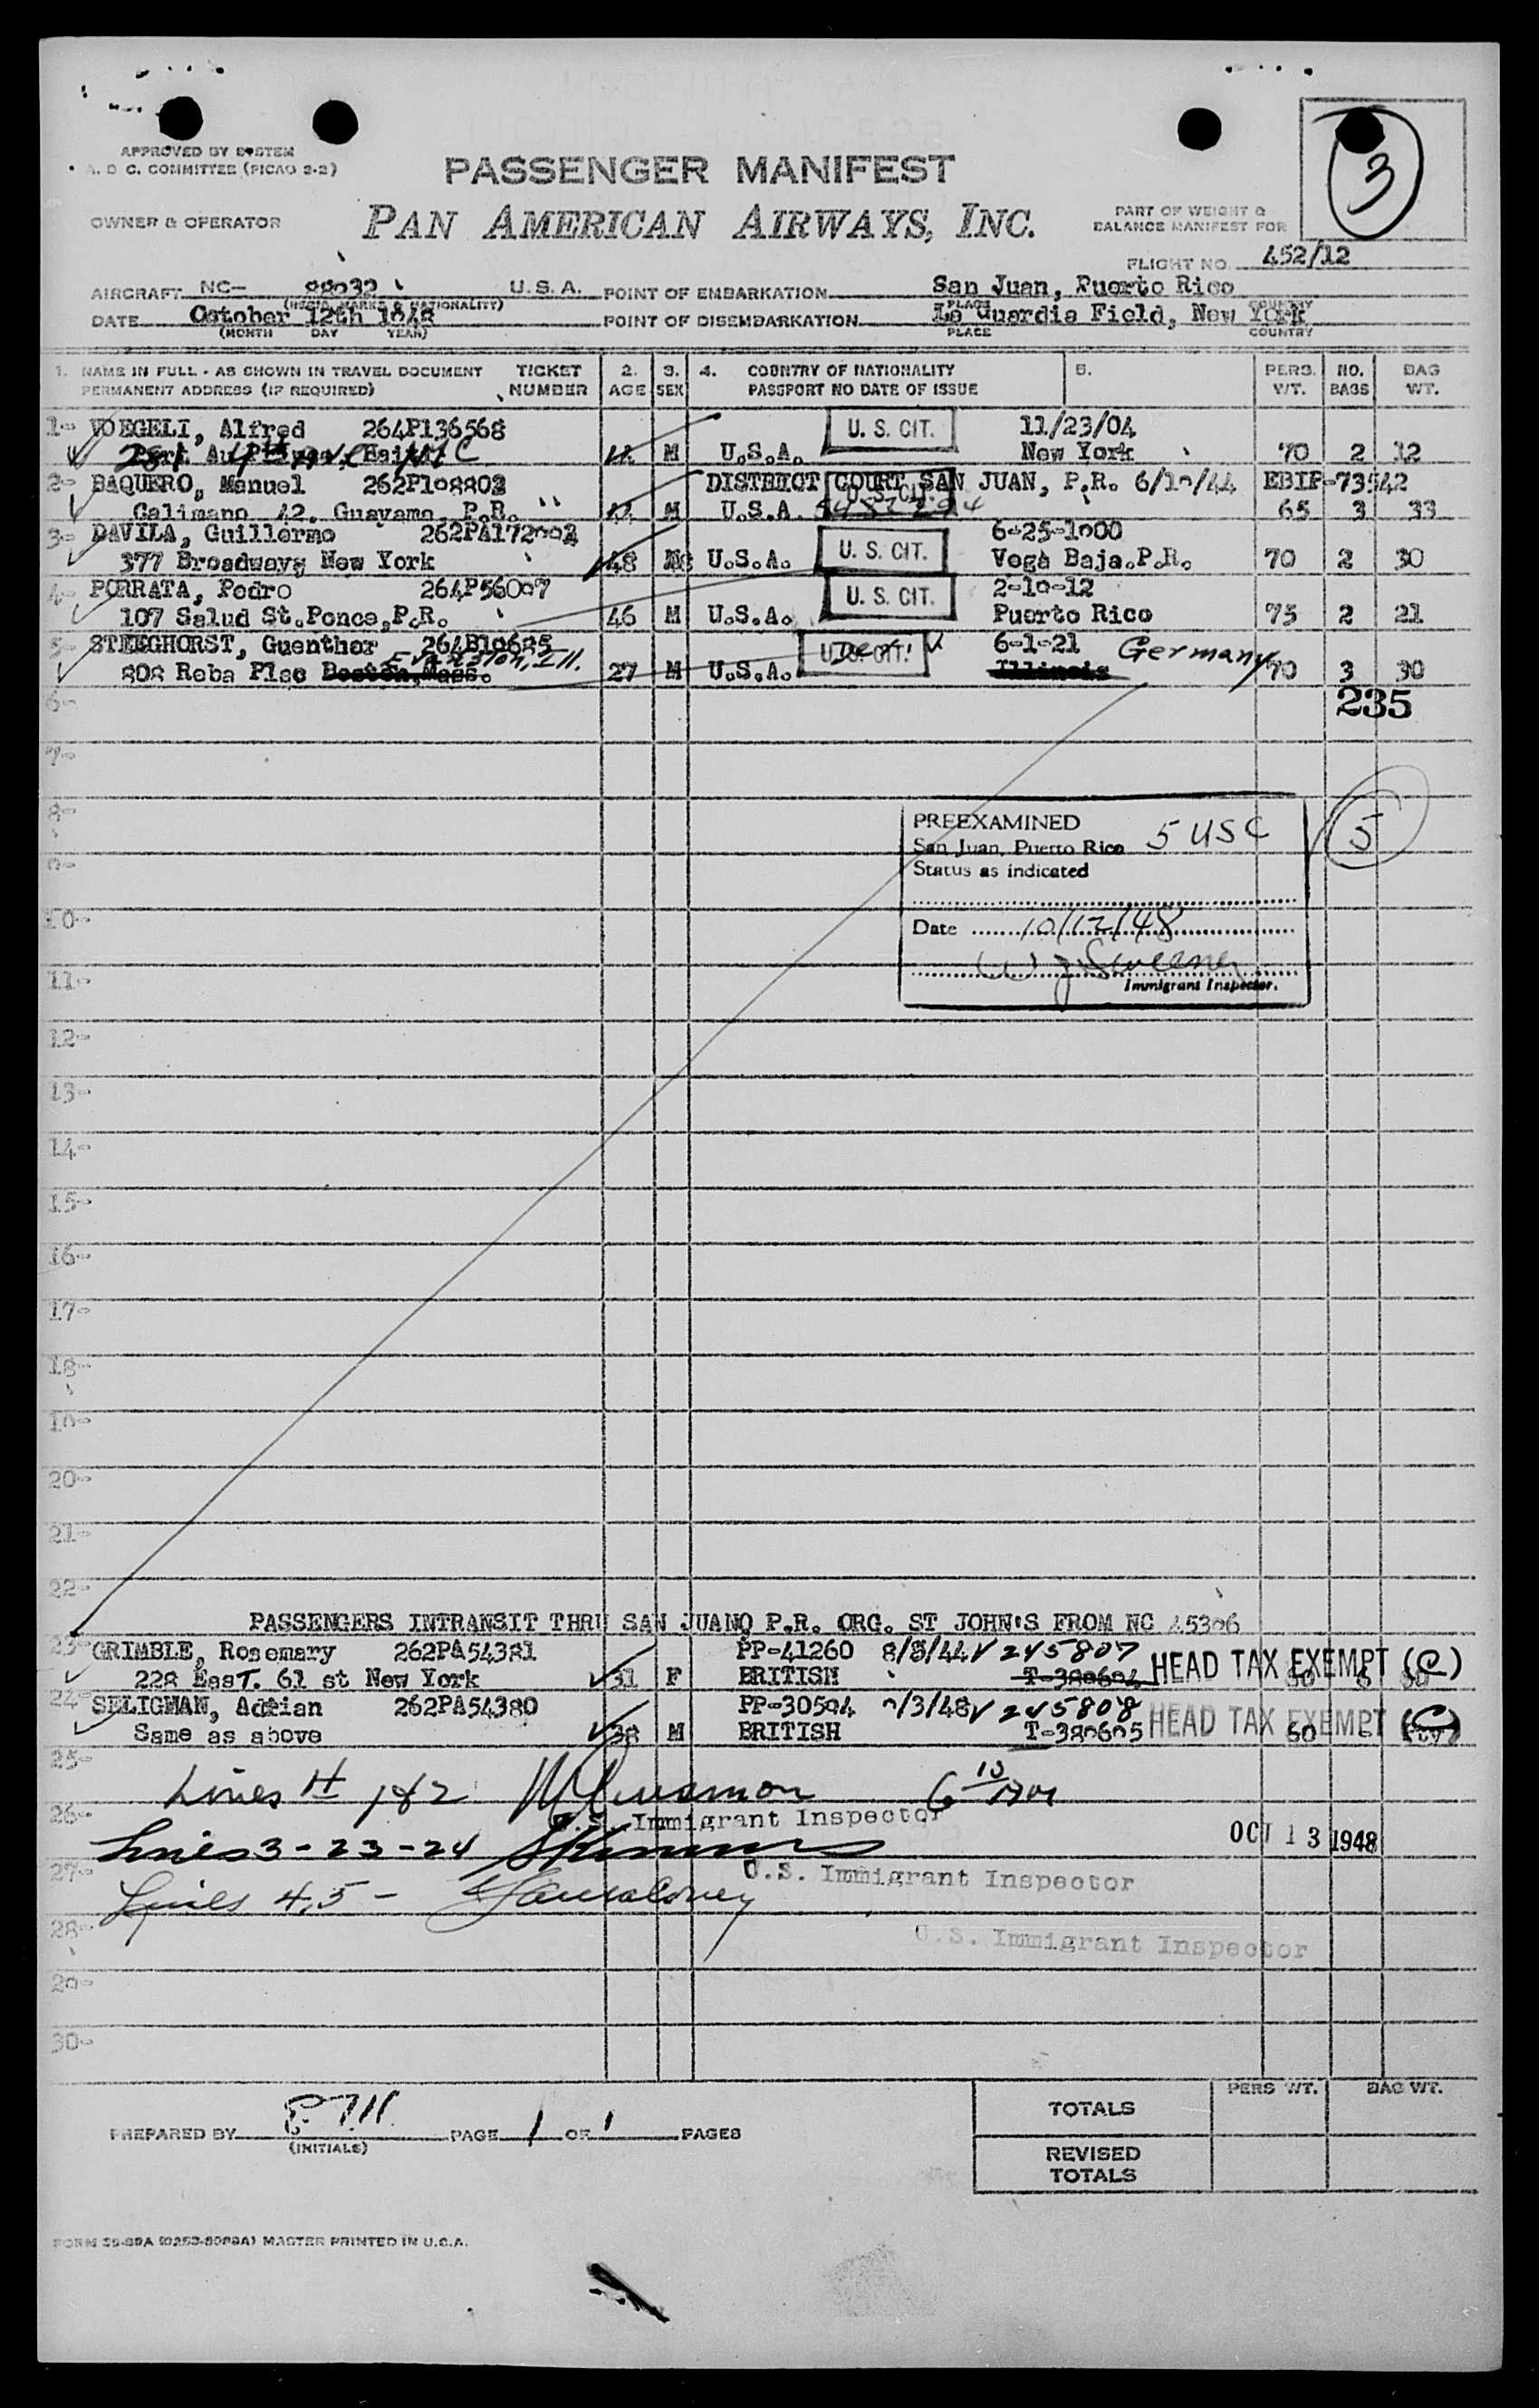 3
APPROVED BY SYSTEM
A. D C. COMMITTEE (PICAO 2-2)
PASSENGER MANIFEST
OWNER & OPERATOR
PAN AMERICAN AIRWAYS, INC.
PART OF WEIGHT &
BALANCE MANIFEST FOR
FLIGHT NO. 452/12
AIRCRAFT NC- 88032 U.S.A. POINT OF EMBARKATION San Juan, Puerto Rico
(REGIS. MARKS & NATIONALITY) PLACE COUNTRY
DATE October 12th 1948 POINT OF DISEMBARKATION La Guardia Field, New York
(MONTH DAY YEAR) PLACE COUNTRY
1. NAME IN FULL - AS SHOWN IN TRAVEL DOCUMENT TICKET 2. 3. 4. COUNTRY OF NATIONALITY 5. PERS. NO. BAG
PERMANENT ADDRESS (IF REQUIRED) NUMBER AGE SEX PASSPORT NO DATE OF ISSUE WT. BAGS WT.
1- VOEGELI, Alfred 264P136568 U. S. CIT. 11/23/04
281 4th Ave NYC M U.S.A. New York 70 2 12
2- BAQUERO, Manuel 262P108803 DISTRICT COURT SAN JUAN, P.R. 6/10/44 EBIP-73542
Calimano 42, Guayama, P.R. M U.S.A. U. S. CIT. 65 3 33
3- DAVILA, Guillermo 262PA172002 6-25-1900
377 Broadway, New York 48 U.S.A. U. S. CIT. Vega Baja.P.R. 70 2 30
4- PORRATA, Pedro 264P56007 U. S. CIT. 2-10-12
107 Salud St.Ponce,P.R. 46 M U.S.A. Puerto Rico 75 2 21
5- STEEGHORST, Guenther 264B10685 U. S. CIT. 6-1-21 Germany
808 Reba Plac Boston,Mass. Evanston, Ill. 27 M U.S.A. Illinois 70 3 30
6- 235
7-
8-
PREEXAMINED 5 USC 5
9- San Juan, Puerto Rico
Status as indicated
10-
Date 10/12/48
11- W J Sweeney
Immigrant Inspector.
12-
13-
14-
15-
16-
17-
18-
19-
20-
21-
22-
PASSENGERS INTRANSIT THRU SAN JUANQ P.R. ORG. ST JOHN'S FROM NC 45306
23- GRIMBLE, Rosemary 262PA54381 PP-41260 8/8/44 V 245807
228 EasT. 61 st New York 31 F BRITISH T-380604 HEAD TAX EXEMPT (C)
24- SELIGMAN, Adrian 262PA54380 PP-30504 9/3/48 V 245808
Same as above 38 M BRITISH T-380605 HEAD TAX EXEMPT (C)
25-
Lines 1 & 2
26- U.S. Immigrant Inspector
Lines 3-23-24 OCT 13 1948
27- U.S. Immigrant Inspector
Lines 4,5 -
28- U.S. Immigrant Inspector
29-
30-
PERS WT. BAG WT.
TOTALS
PREPARED BY PAGE 1 OF 1 PAGES
(INITIALS)
REVISED
TOTALS
MASTER PRINTED IN U.S.A.